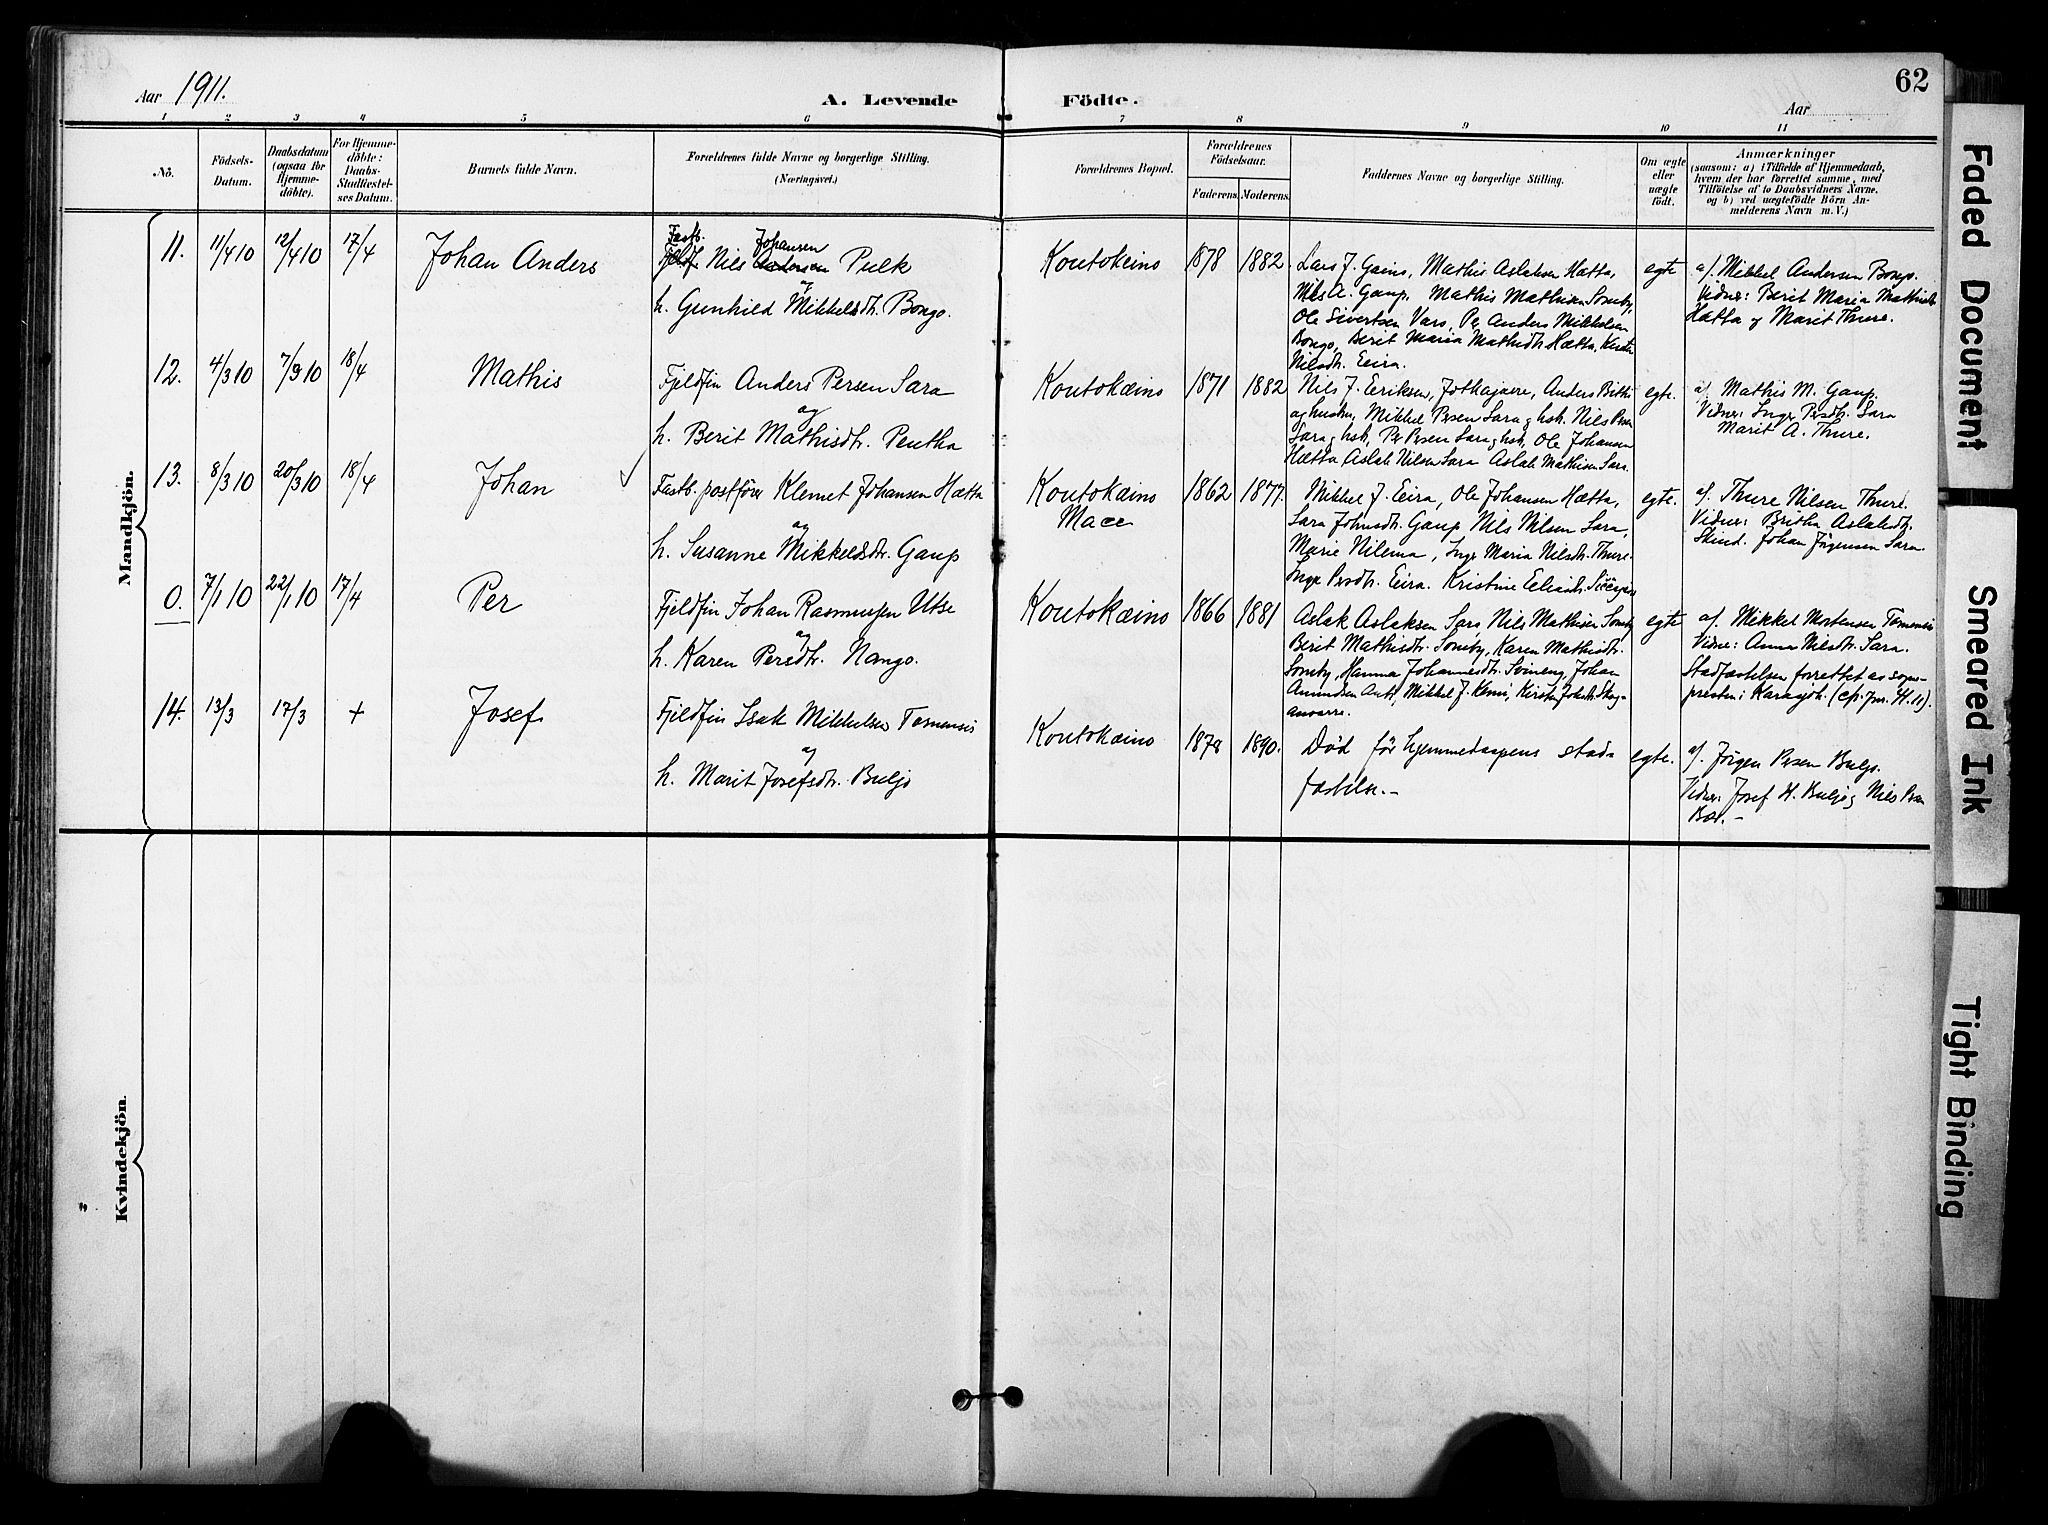 Aar 1911.
A. Levende Födte.
Aar
62
1 2 3 4 5 6 7 8 9 10 11
No.
Födsels-
Datum.
Daabsdatum
(ogsaa for
Hjemme-
döbte).
For Hjemme-
döbte:
Daabs-
Stadfæstel-
ses Datum.
Barnets fulde Navn.
Forældrenes fulde Navne og borgerlige Stilling.
(Næringsvei.)
Forældrenes Bopæl.
Forældrenes
Födselsaar.
Faderens. Moderens.
Faddernes Navne og borgerlige Stilling.
Om ægte
eller
uægte
født.
Anmærkninger
(saasom: a) i Tilfælde af Hjemmedaab,
hvem der har forrettet samme, med
Tilföielse af to Daabsvidners Navne.
og b) ved uægtefödte Börn An-
melderens Navn m. V.)
Mandkjön.
11. 11/4 10 12/4 10 17/4 Johan Anders
Fastb. Johansen
Fjeldf. Nils Andersen Pulk
og
h. Gunhild Mikkelsdtr. Bongo.
Koutokeino 1878 1882.
Lars J. Gaino, Mathis Aslaksen Hætta,
Nils A. Gaup, Mathis Mathisen Somby,
Ole Sivertsen Vars, Per Anders Mikkelsen
Bongo, Berit Maria Mathisdtr. Hætta, Kirsten
Nilsdtr. Eira.
egte
a/. Mikkel Andersen Bongo.
Vidner: Berit Maria Mathisdtr
Hætta og Marit Thure.
12. 4/3 10 7/3 10 18/4 Mathis
Fjeldfin Anders Persen Sara
og
h. Berit Mathisdtr. Pentha
Koutokæino 1871 1882
Nils J. Eeriksen, Anders Bitti
og hustru, Mikkel Persen Sara og hst. Nils Persen
Sara og hst, Per Persen Sara og hst, Ole Johansen
Hætta Aslak Nilsen Sara Aslak Mathisen Sara.
egte.
a/. Mathis M. Gaup.
Vidner: Inger Persdtr. Sara
Marit A. Thure.
13. 8/3 10 20/3 10 18/4 Johan
Fastb. postfører Klemet Johansen Hætta
og
h. Susanne Mikkelsdtr. Gaup
Koutokæino
Mace
1862 1877.
Mikkel J. Eira, Ole Johansen Hætta,
Sara Johnsdtr. Gaup Nils Nilsen Sara,
Marie Nilema, Inger Maria Nilsdtr. Thure.
Inger Persdtr. Eira. Kristine
egte.
a/. Thure Nilsen Thure.
Vidner: Britha Aslaksdtr.
Skind. Johan Jörgensen Sara.
0. 7/1 10 22/1 10 17/4 Per
Fjeldfin Johan Rasmussen Utse
og
h. Karen Persdtr. Nango.
Koutokæino 1866 1881
Aslak Aslaksen Sara Nils Mathisen Somby
Berit Mathisdtr. Somby, Karen Mathisdtr.
Somby, Hanna Johannesdtr. Svineng, Johan
Amundsen Anti, Mikkel J. Kemi, Kirsten
egte
a/. Mikkel Mortensen Tornensis
Vidne: Anna Nilsdtr. Sara.
Stadfæstelsen forrettet av sogne-
presten i Karasjok.
14. 13/3 17/3 + Josef
Fjeldfin Isak Mikkelsen Tornensis
og
h. Marit Josefsdtr. Buljo
Koutokæino 1878 1890.
Død før hjemmedaapens stad-
fæstelse.-
egte.
a/. Jörgen Persen Buljo.
Vidner. Josef H. Buljo og Nils Persen
Bær.-
Kvindekjön.
Faded Document
Smeared Ink
Tight Binding